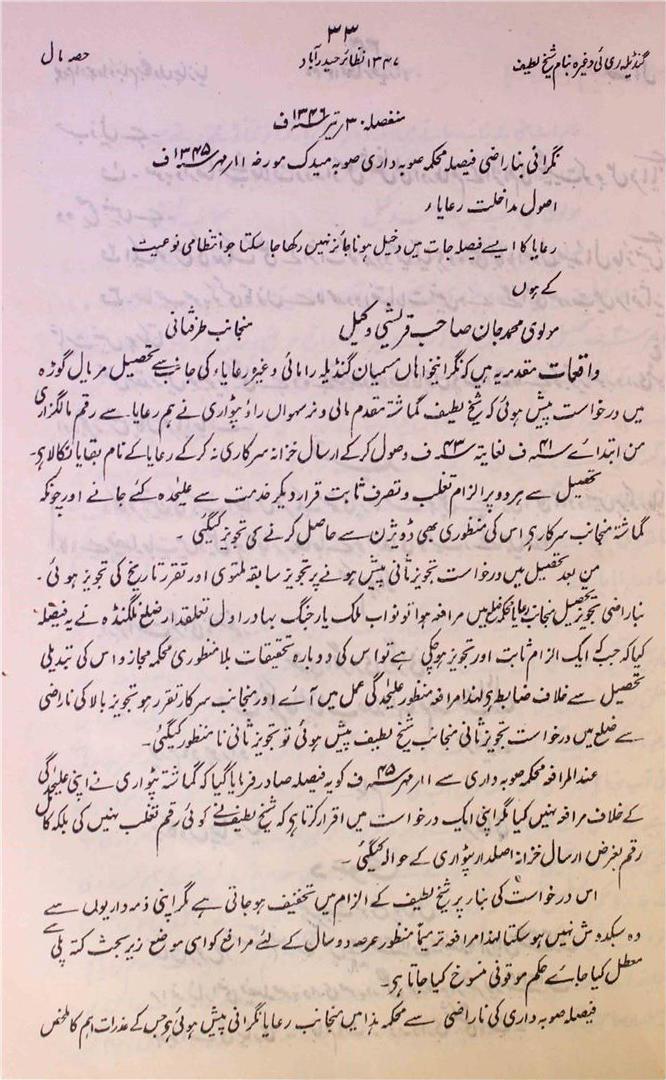 ۳۳
گنڈیلہ ری رائی وغیرہ بنام شیخ لطیف ۱۳۴۷ نظائر حیدرآباد حصہ مال
منفصلہ ۳۰ تیر ۱۳۴۶ ف
نگرانی بناراضی فیصلہ محکمہ صوبہ داری صوبہ میدک مورخہ ۱۱ مہر ۱۳۴۵ ف
اصول مداخلت رعایاء
رعایا کا ایسے فیصلہ جات میں دخیل ہونا جائز نہیں رکھا جا سکتا جو انتظامی نوعیت
کے ہوں
مولوی محمد جان صاحب قریشی وکیل منجانب طرفثانی
واقعات مقدمہ یہ ہیں کہ نگرانیخواہاں مسمیان گنڈیلہ رامائی وغیرہ رعایاء کی جانب سے تحصیل مریال گوڑہ
میں درخواست پیش ہوئی کہ شیخ لطیف گماشتہ مقدم مالی و نرسہواں راؤ پٹواری نے ہم رعایا سے رقم مالگزاری
من ابتدائے ۴۱ ف لغایتہ ۴۳ ف وصول کرکے ارسال خزانہ سرکاری نہ کرکے رعایا کے نام بقایا نکالا ہے۔
تحصیل سے ہر دو پر الزام تغلب و تصرف ثابت قرار دیکر خدمت سے علٰحدہ کئے جانے اور چونکہ
گماشتہ منجانب سرکار ہے اس کی منظوری بھی ڈویژن سے حاصل کرنے کی تجویز کیگئی۔
من بعد تحصیل میں درخواست تجویز ثانی پیش ہونے پر تجویز سابقہ ملتوی اور تقرر تاریخ کی تجویز ہوئی۔
بناراضی تجویز تحصیل منجانب رعایا محکمہ ضلع میں مرافعہ ہوا تو نواب ملک یار جنگ بہادر اول تعلقدار ضلع نلگنڈہ نے یہ فیصلہ
کیا کہ جب کے ایک الزام ثابت اور تجویز ہوچکی ہے تو اس کی دوبارہ تحقیقات بلا منظوری محکمہ مجاز و اس کی تبدیلی
تحصیل سے خلاف ضابطہ ہے لہذا مرافعہ منظور علیحدگی عمل میں آئے اور منجانب سرکار تقرر ہو تجویز بالا کی ناراضی
سے ضلع میں درخواست تجویز ثانی منجانب شیخ لطیف پیش ہوئی تو تجویز ثانی نامنظور کیگئی۔
عندالمرافعہ محکمہ صوبہ داری سے ۱۱ مہر ۴۵ ف کو یہ فیصلہ صادر فرمایا گیا کہ گماشتہ پٹواری نے اپنی علیحدگی
کے خلاف مرافعہ نہیں کیا مگر اپنی ایک درخواست میں اقرار کرتا ہے کہ شیخ لطیف نے کوئی رقم تغلب نہیں کی بلکہ کامل
رقم بغرض ارسال خزانہ اصلدار پٹواری کے حوالہ کیگئی۔
اس درخواست کی بنار پر شیخ لطیف کے الزام میں تخفیف ہوجاتی ہے مگر اپنی ذمہ داریوں سے
وہ سبکدوش نہیں ہو سکتا لہذا مرافعہ ترمیماً منظور عرصہ دو سال کے لئے مرافع کو اسی موضع زیر بحث کتہ پلی سے
معطل کیا جائے حکم موقوفی منسوخ کیا جاتا ہے۔
فیصلہ صوبہ داری کی ناراضی سے محکمہ ہذا میں منجانب رعایا نگرانی پیش ہوئی ہے جس کے عذرات اہم کا ملخص